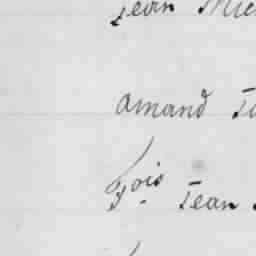 Jean
amand
Fois Jean